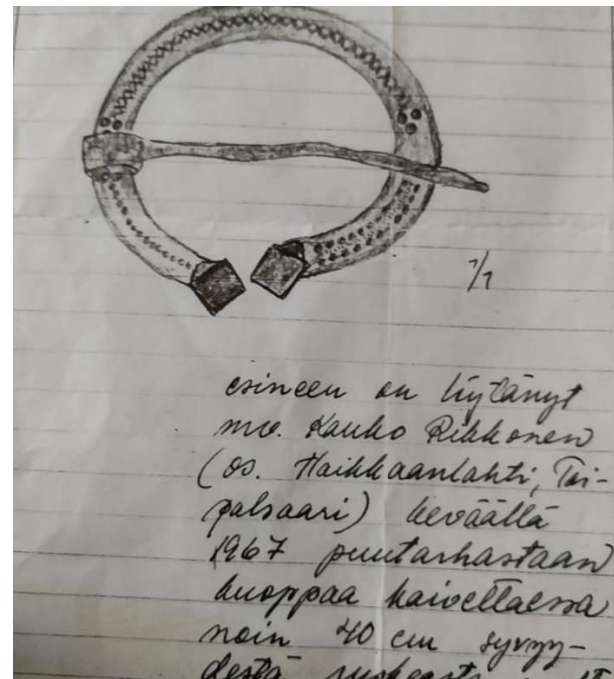 1/1
esineen on löytänyt
mv. Kauko Rikkonen
(os. Haikkaanlahti, Tai-
palsaari) keväällä
1967 puutarhastaan
kuoppaa kaivettaessa
noin 40 cm syvyy-
destä